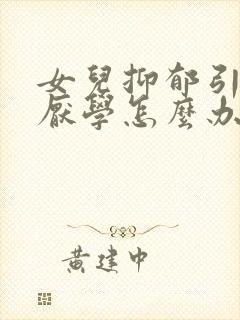 女兒抑郁引
厭學怎麼办
黃建中